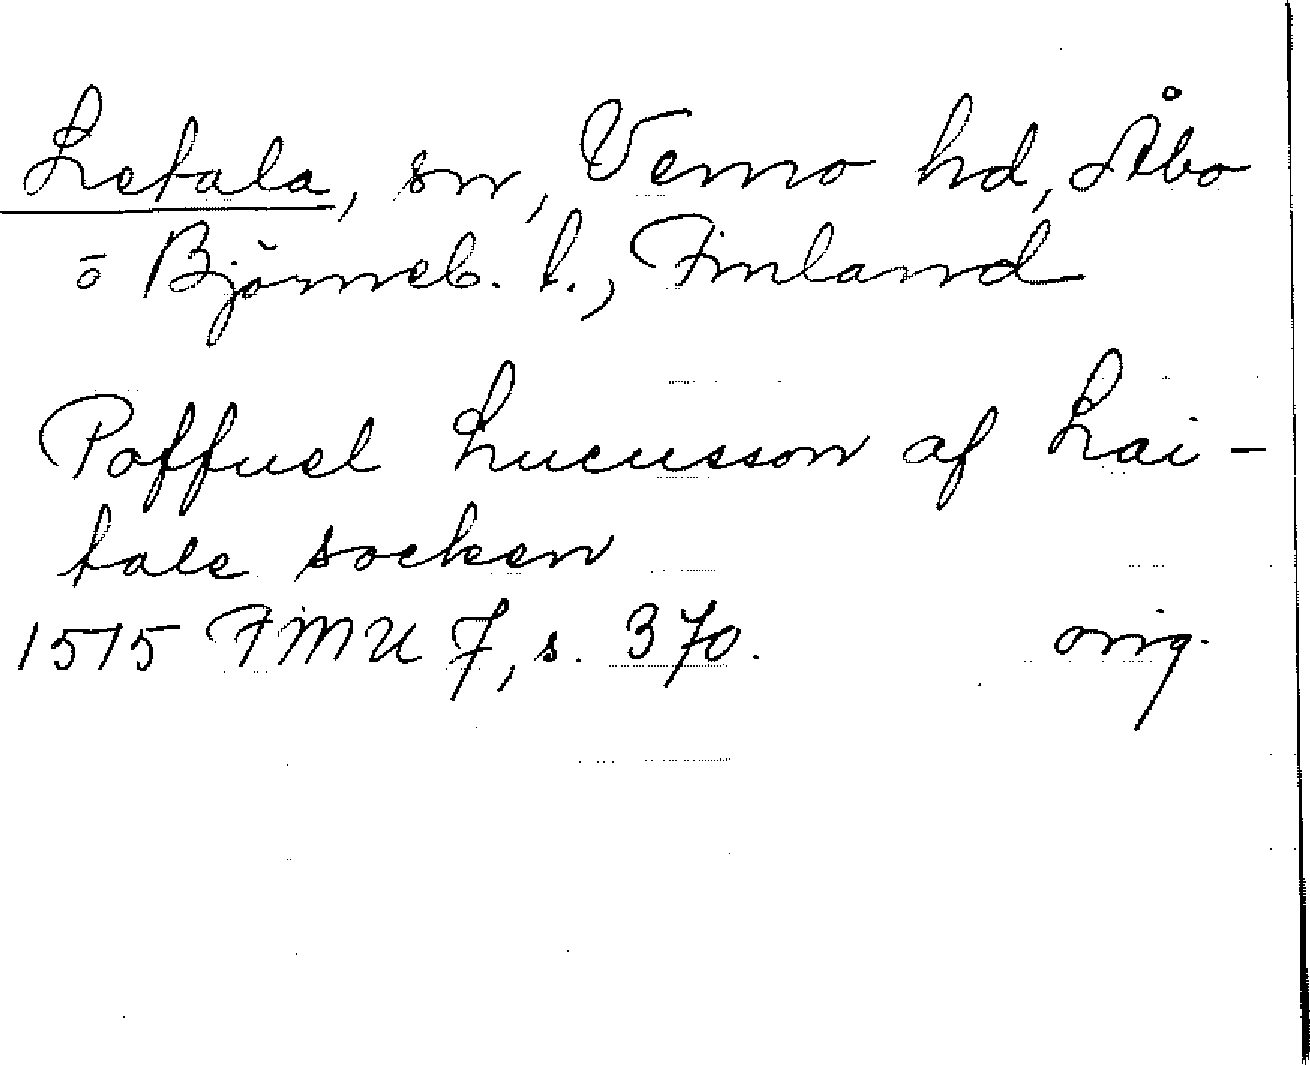 Letala, sn, Vemo hd, Åbo
o Björneb. l., Finland
Poffuel Lucusson af Lai-
tale socken
1515 FMU 7, s. 370. orig.